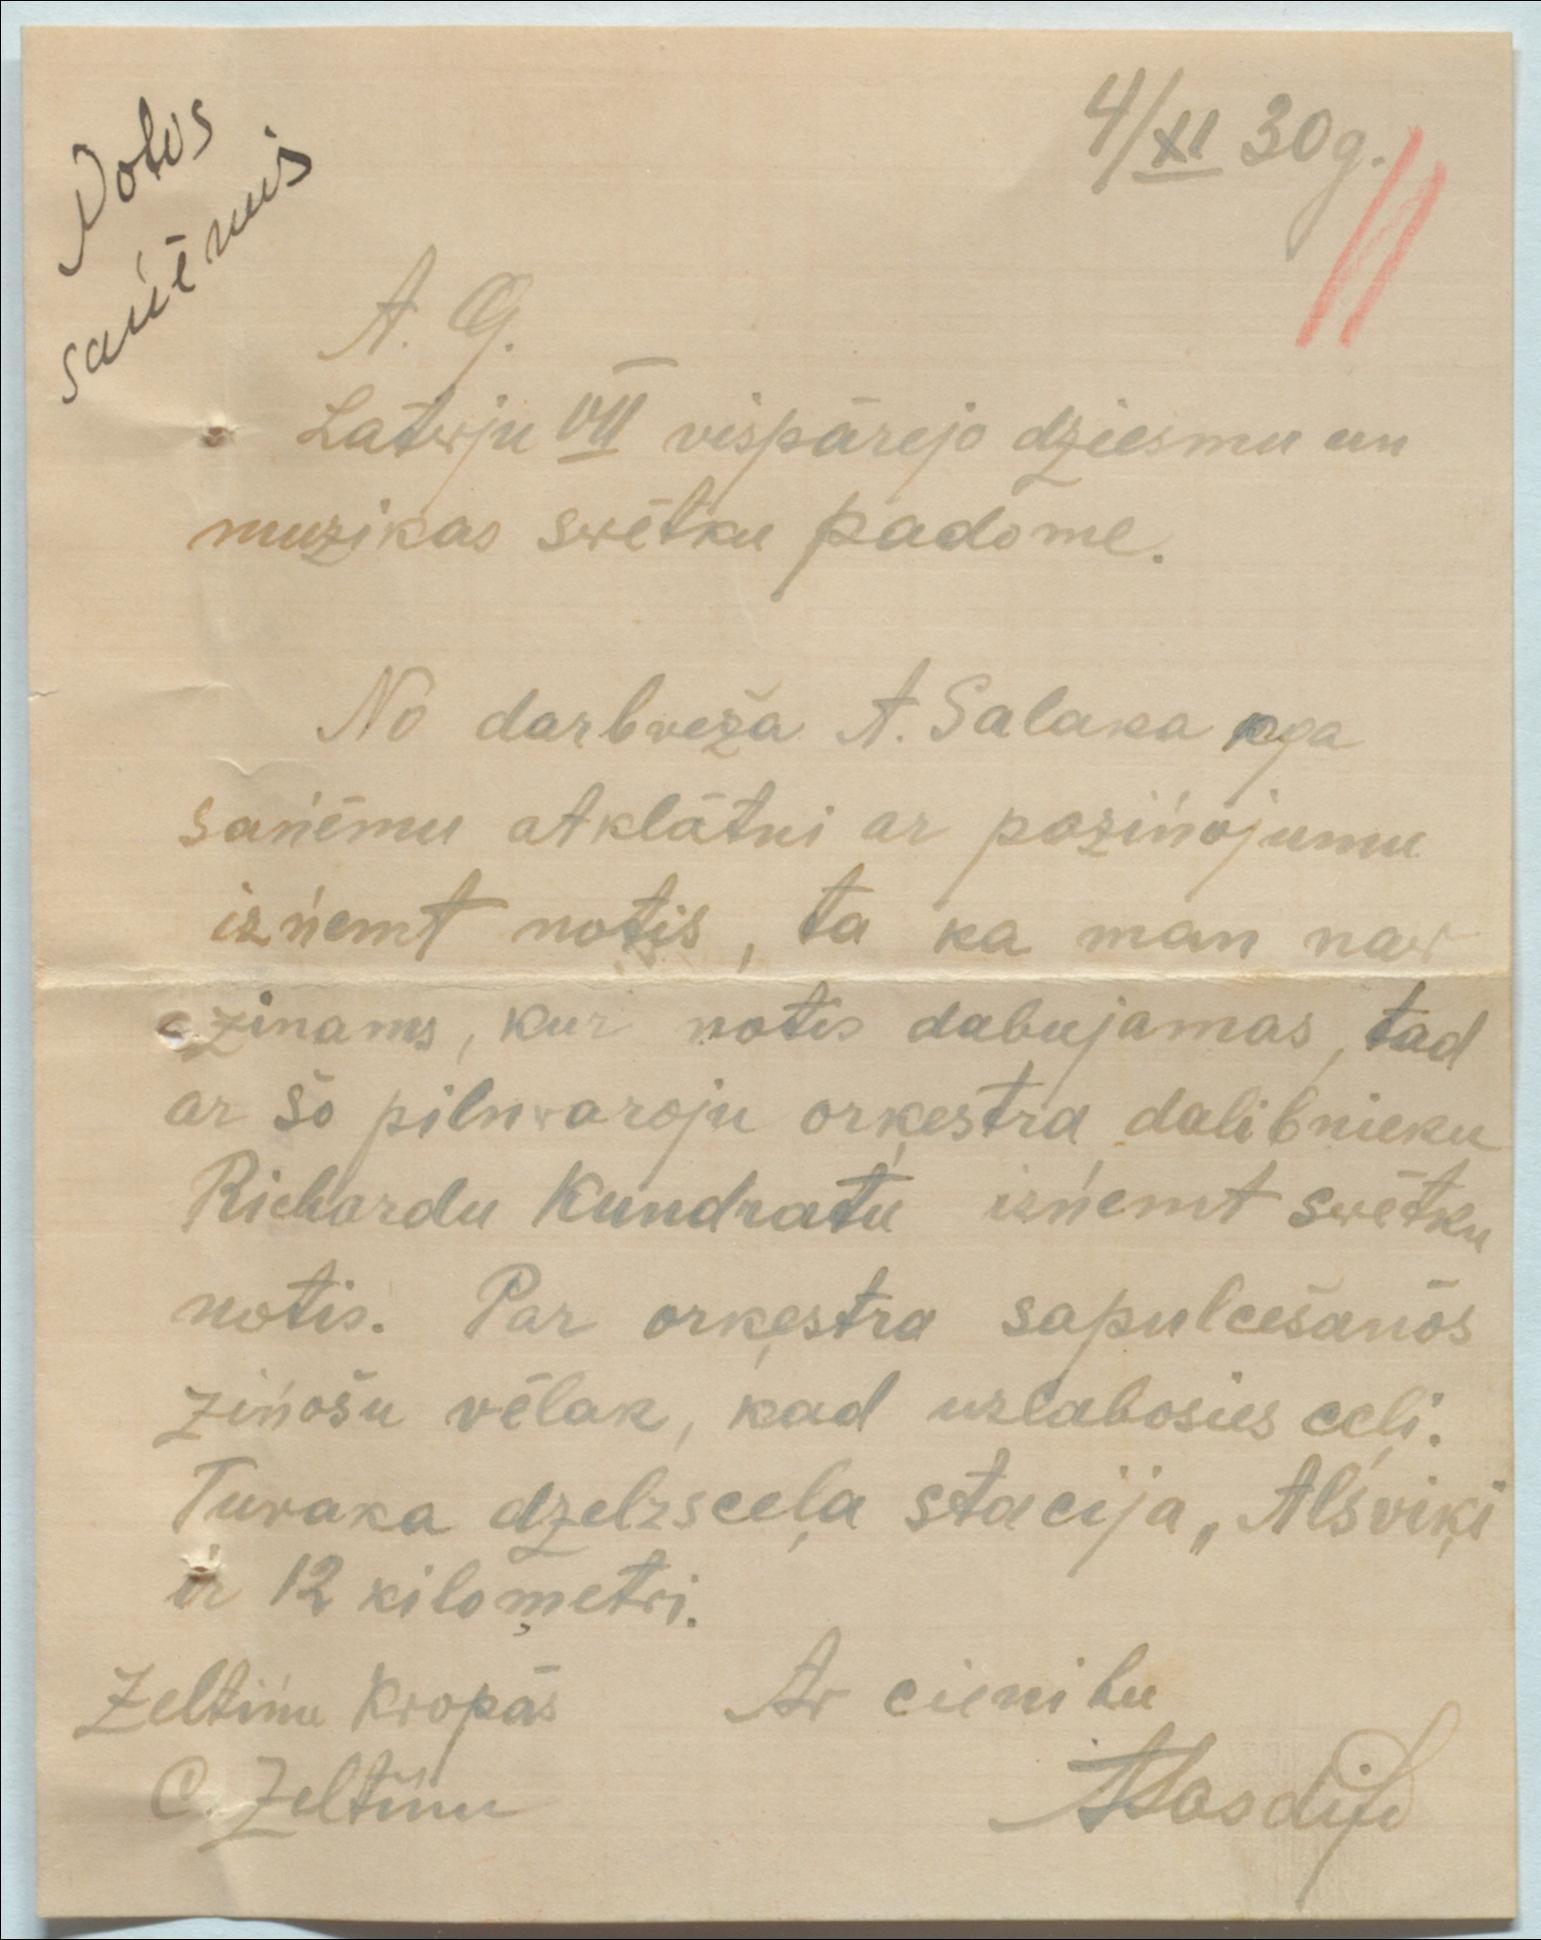 4/XI 30g.
Notes
saņēmis
A. G.
Latwju VII vispārejo dziesmu un
muzikas swētku padome.
No darbveža A. Salaka kga
sańēmu atklātni ar pazińojumu
izńemt notis, ta ka man naw
zinams, kur notis dabujamas, tad
ar šo pilnwaroju orķestra dalibnieku
Richardu Kundratu izńemt swētku
notis. Par orķestra sapulcešanos
zińošu vēlak, kad uzlabosies ceļi.
Tuvaka dzelzsceļa stacija „Alsviķi
ir 12 kilometri.
Zeltińu Kropās
Ar cienibu
C. Zeltińu